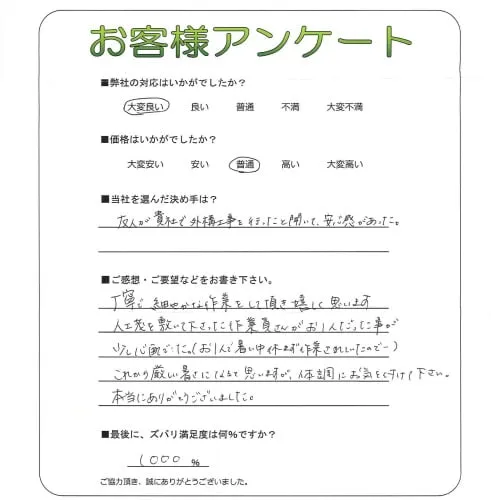 お客様アンケート
■弊社の対応はいかがでしたか？
大変良い 良い 普通 不満 大変不満
■価格はいかがでしたか？
大変安い 安い 普通 高い 大変高い
■当社を選んだ決め手は？
友人が貴社で外構工事を行ったと聞いて、安心感があった。
■ご感想・ご要望などをお書き下さい。
丁寧で細やかな作業をして頂き嬉しく思います
人工芝を敷いて下さった作業員さんがお1人だった事が
少し心配でした。(お1人で暑い中休まず作業されていたので…)
これから厳しい暑さになると思いますが、体調にお気をつけ下さい。
本当にありがとうございました。
■最後に、ズバリ満足度は何%ですか？
1000 %
ご協力頂き、誠にありがとうございました。